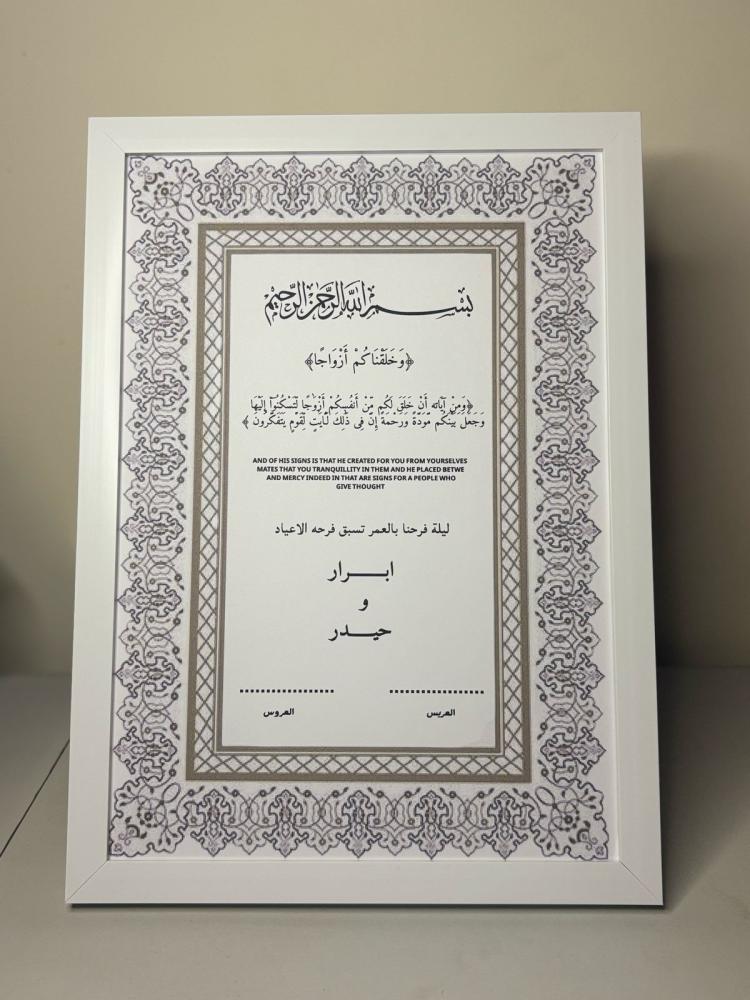 بسم الله الرحمن الرحيم
﴿وَخَلَقْنَاكُمْ أَزْوَاجًا﴾
﴿وَمِنْ آيَاتِهِ أَنْ خَلَقَ لَكُم مِّنْ أَنفُسِكُمْ أَزْوَاجًا لِّتَسْكُنُوا إِلَيْهَا
وَجَعَلَ بَيْنَكُم مَّوَدَّةً وَرَحْمَةً إِنَّ فِي ذَٰلِكَ لَآيَٰتٍ لِّقَوْمٍ يَتَفَكَّرُونَ ﴾
AND OF HIS SIGNS IS THAT HE CREATED FOR YOU FROM YOURSELVES
MATES THAT YOU TRANQUILLITY IN THEM AND HE PLACED BETWE
AND MERCY INDEED IN THAT ARE SIGNS FOR A PEOPLE WHO
GIVE THOUGHT
ليلة فرحنا بالعمر تسبق فرحه الاعياد
ابـــرار
و
حيـدر
العريس
العروس